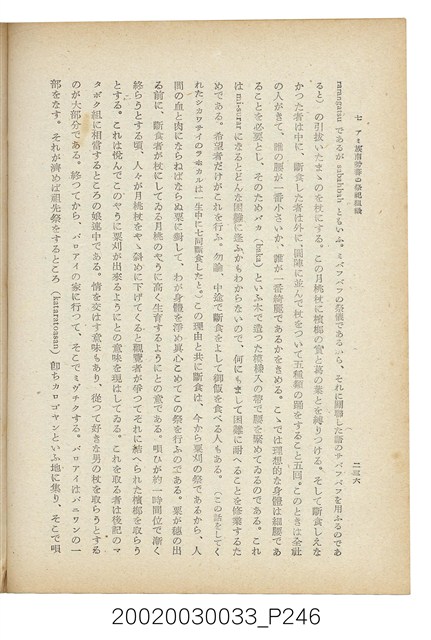 七　アミ族南勢蕃の祭祀組織　　二三六
ramagatsu であるが sabahbah ともいふ。ミバフバフの祭儀であるから、それに關聯した語のチバフバフを用ふるのであ
ると）の引拔いたまゝのを杖にする。この月桃杖に檳榔の實と葛の葉とを縛りつける。そして斷食しえな
かつた者は中に、斷食した者は外に圓陣に並んで杖をついて五種類の踊をすること五回。このときは全社
の人がきて、誰の腰が一番小さいか、誰が一番綺麗であるかをきめる。こゝでは理想的な身體は細腰であ
ることを必要とし、そのためバカ（baka）といふ木で造つた模樣入の帶で腰を緊めてゐるのである。これ
は mi-surar になるとどんな困難に逢ふかもわからないので、何にもまして困難に耐へることを修業するた
めである。希望者だけがこれを行ふ。勿論、中途で斷食をよして御飯を食べる人もある。（この話をしてく
れたシカワサイのラホカルは一生中に七回斷食したと。）この理由と共に斷食は、今から粟刈の祭であるから、人
間の血と肉にならねばならぬ粟に對して、わが身體を淨め眞心こめてこの祭を行ふのである。粟が穗の出
る前に、斷食者が杖にしてゐる月桃のやうに高く生育するようにとの意である。唄ひが約一時間位で漸く
終らうとする頃、人々が月桃杖をやゝ斜めに下げてくると觀覽者が爭つてそれに結へられた檳榔を取らう
とする。これは悅んでこのやうに粟刈が出來るようにとの意味を現はしてゐる。これを取る者は後記のマ
タボク組に相當するところの娘連中である。情を交はす意味もあり、從つて好きな男の杖を取らうとする
のが大部分である。終つてから、バロアイの家に行つて、そこでミヴチクする。バロアイはバニワンの一
部をなす。それが濟めば祖先祭をするところ（kataratoasan）卽ちカロゴヤンといふ地に集り、そこで唄
20020030033_P246